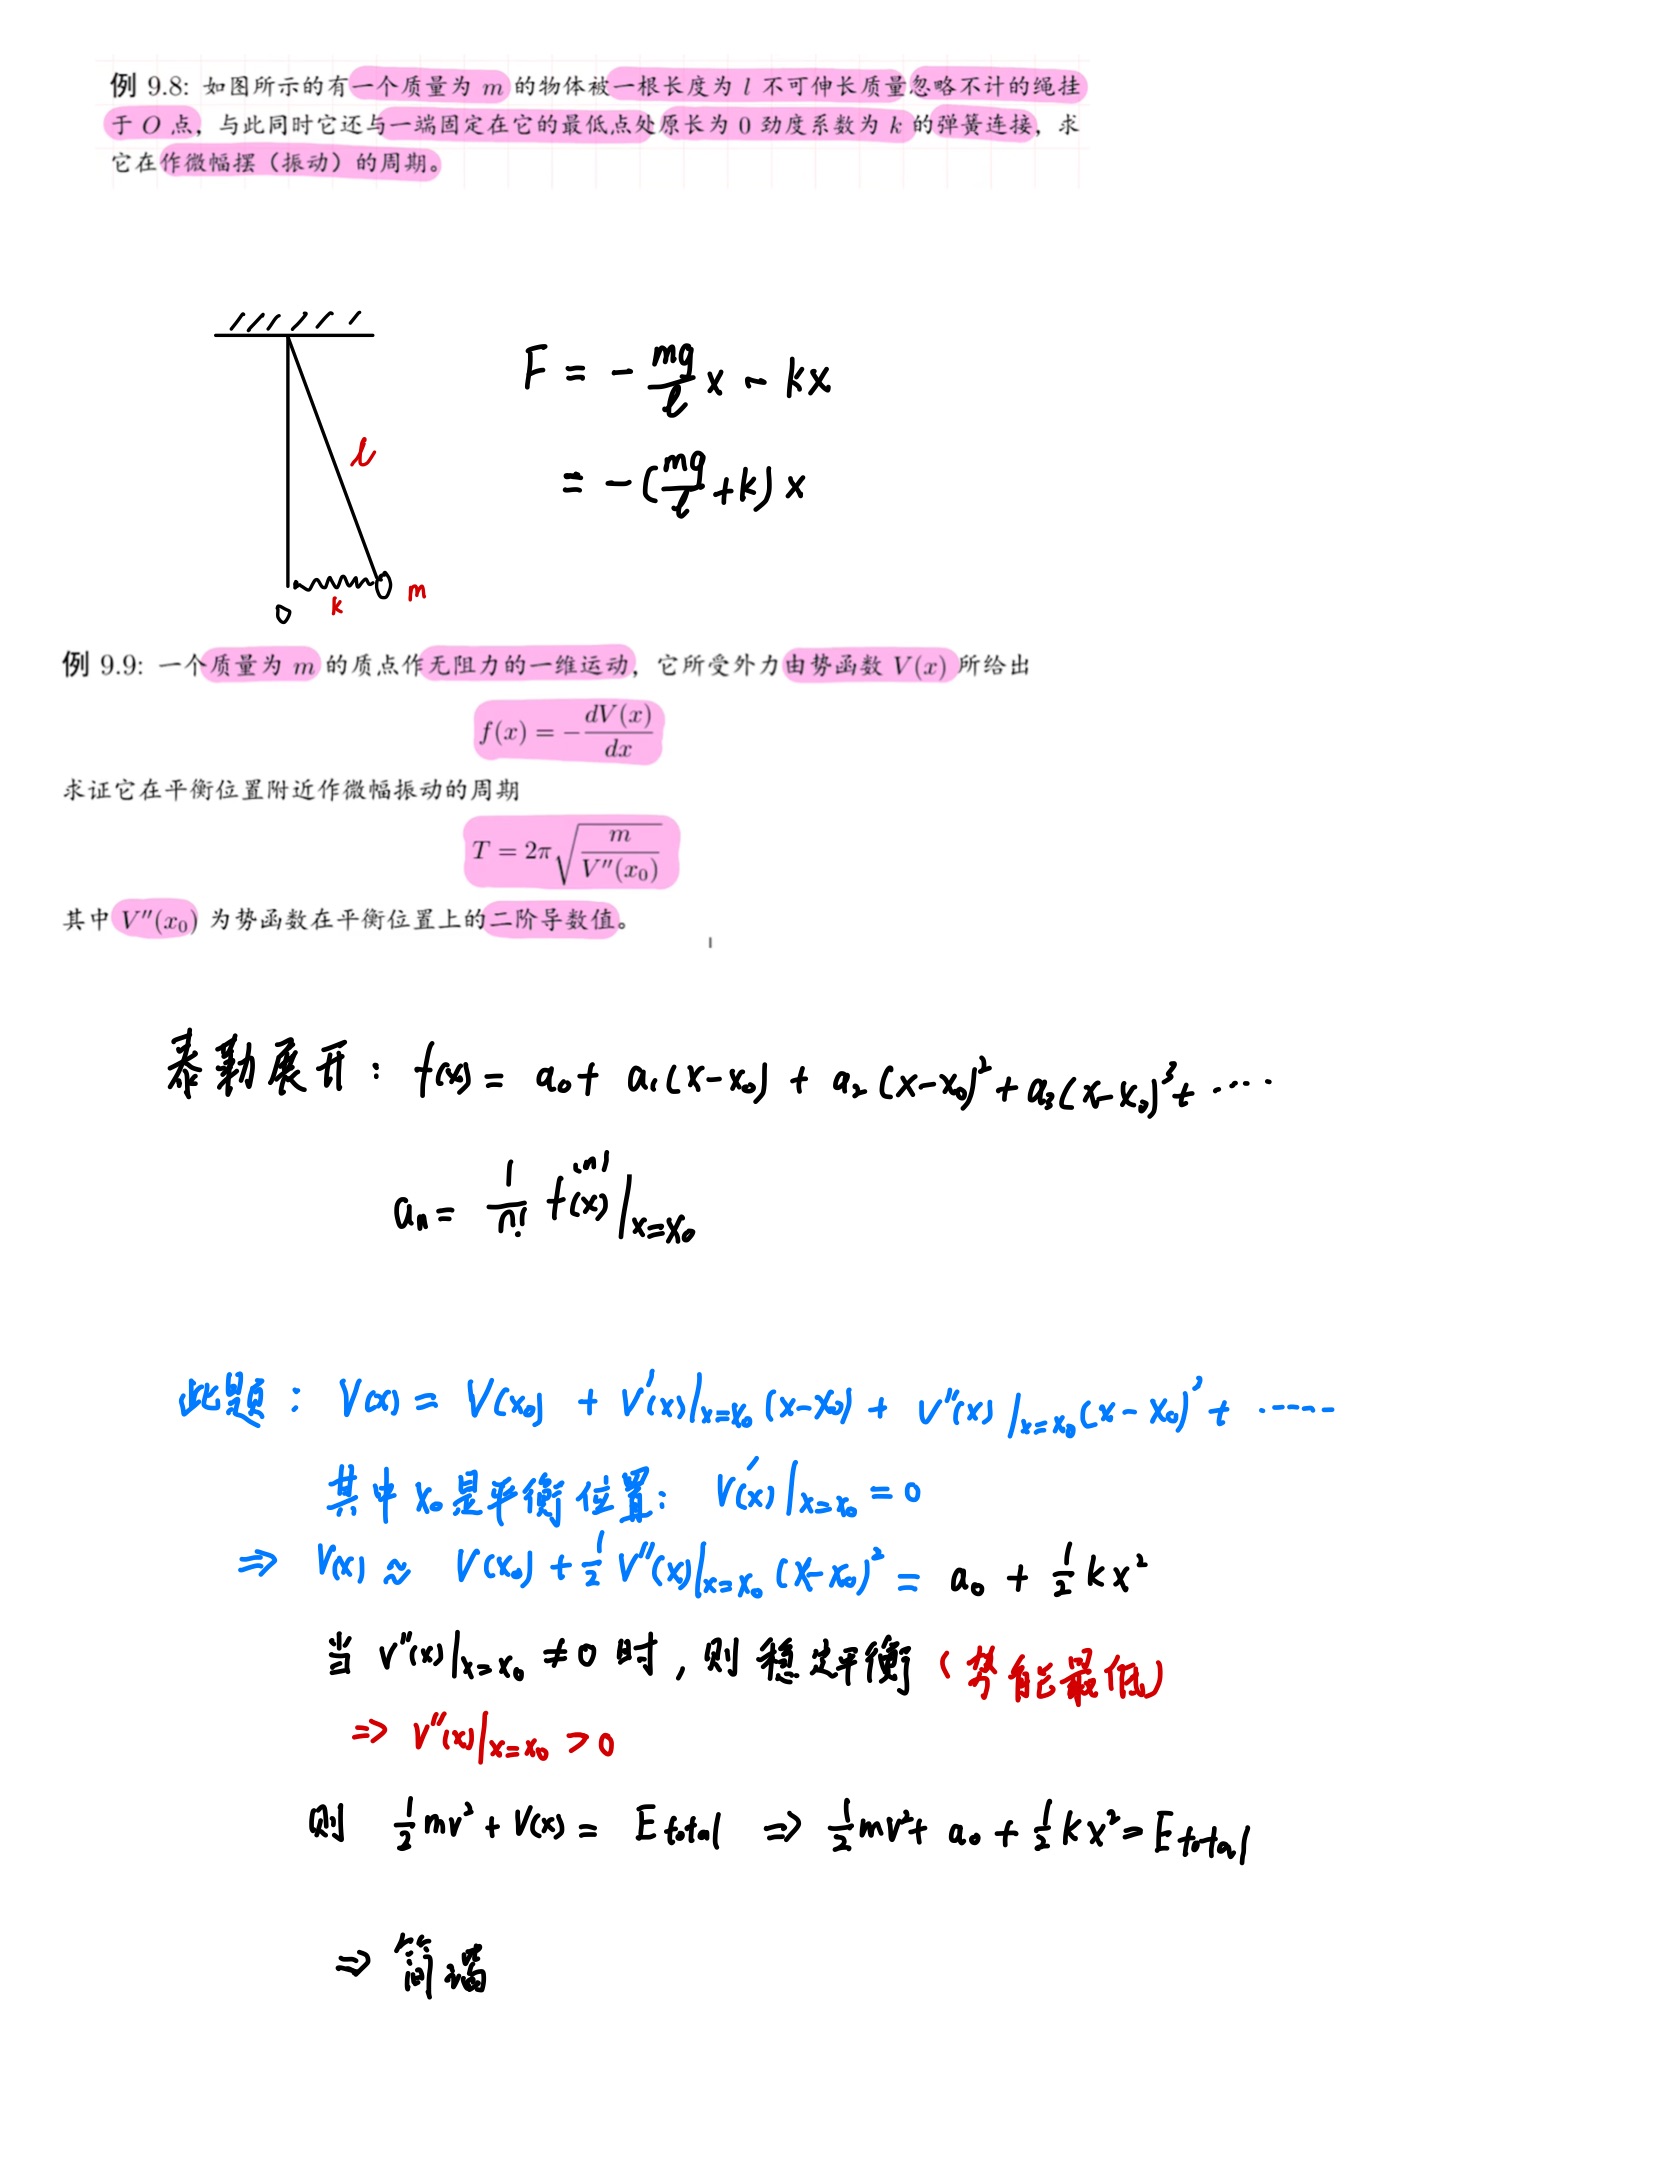 例 9.8: 如图所示的有一个质量为 m 的物体被一根长度为 l 不可伸长质量忽略不计的绳挂
于 O 点，与此同时它还与一端固定在它的最低点处原长为 0 劲度系数为 k 的弹簧连接，求
它在作微幅摆（振动）的周期。
F = - mg/l x - kx
= -(mg/l + k) x
l
O k m
例 9.9: 一个质量为 m 的质点作无阻力的一维运动，它所受外力由势函数 V(x) 所给出
f(x) = - dV(x)/dx
求证它在平衡位置附近作微幅振动的周期
T = 2π √(m/V''(x₀))
其中 V''(x₀) 为势函数在平衡位置上的二阶导数值。
泰勒展开： f(x) = a₀ + a₁(x-x₀) + a₂(x-x₀)² + a₃(x-x₀)³ + ····
aₙ = 1/n! f⁽ⁿ⁾(x)|x=x₀
此题： V(x) = V(x₀) + V'(x)|x=x₀ (x-x₀) + V''(x)|x=x₀ (x-x₀)² + ·····
其中 x₀ 是平衡位置： V'(x)|x=x₀ = 0
⇒ V(x) ≈ V(x₀) + 1/2 V''(x)|x=x₀ (x-x₀)² = a₀ + 1/2 kx²
当 V''(x)|x=x₀ ≠ 0 时，则稳定平衡（势能最低）
⇒ V''(x)|x=x₀ > 0
则 1/2 mv² + V(x) = E total ⇒ 1/2 mv² + a₀ + 1/2 kx² = E total
⇒ 简谐